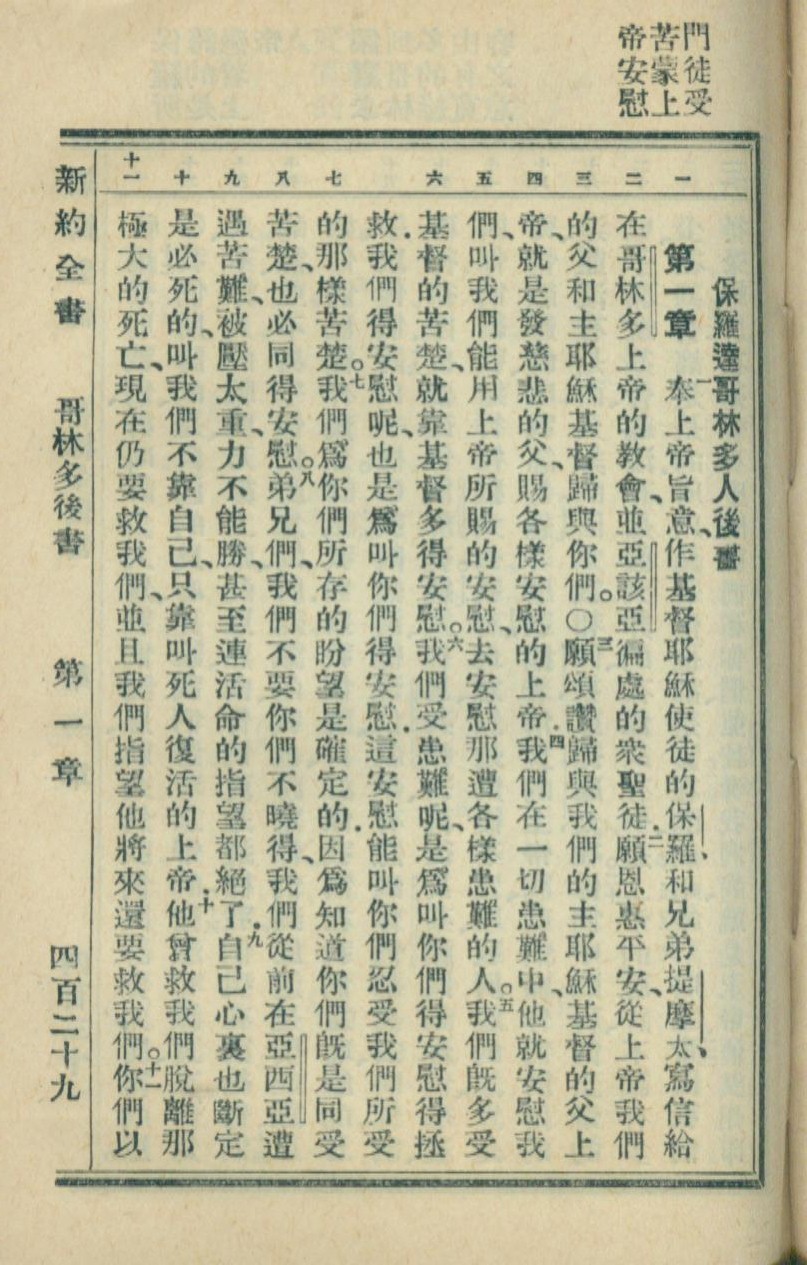 門徒受
苦蒙上
帝安慰
一
二
三
四
五
六
七
八
九
十
十一
保羅達哥林多人後書
第一章 一奉上帝旨意、作基督耶穌使徒的保羅、和兄弟提摩太、寫信給
在哥林多上帝的教會、並亞該亞徧處的衆聖徒．二願恩惠平安、從上帝我們
的父、和主耶穌基督、歸與你們。〇三願頌讚歸與我們的主耶穌基督的父上
帝、就是發慈悲的父、賜各樣安慰的上帝．四我們在一切患難中、他就安慰我
們、叫我們能用上帝所賜的安慰、去安慰那遭各樣患難的人。五我們旣多受
基督的苦楚、就靠基督多得安慰。六我們受患難呢、是爲叫你們得安慰得拯
救．我們得安慰呢、也是爲叫你們得安慰．這安慰能叫你們忍受我們所受
的那樣苦楚。七我們爲你們所存的盼望是確定的．因爲知道你們旣是同受
苦楚、也必同得安慰。八弟兄們、我們不要你們不曉得、我們從前在亞西亞遭
遇苦難、被壓太重、力不能勝、甚至連活命的指望都絕了．九自己心裏也斷定
是必死的、叫我們不靠自己、只靠叫死人復活的上帝．十他曾救我們脫離那
極大的死亡、現在仍要救我們、並且我們指望他將來還要救我們。十一你們以
新約全書 哥林多後書 第一章 四百二十九